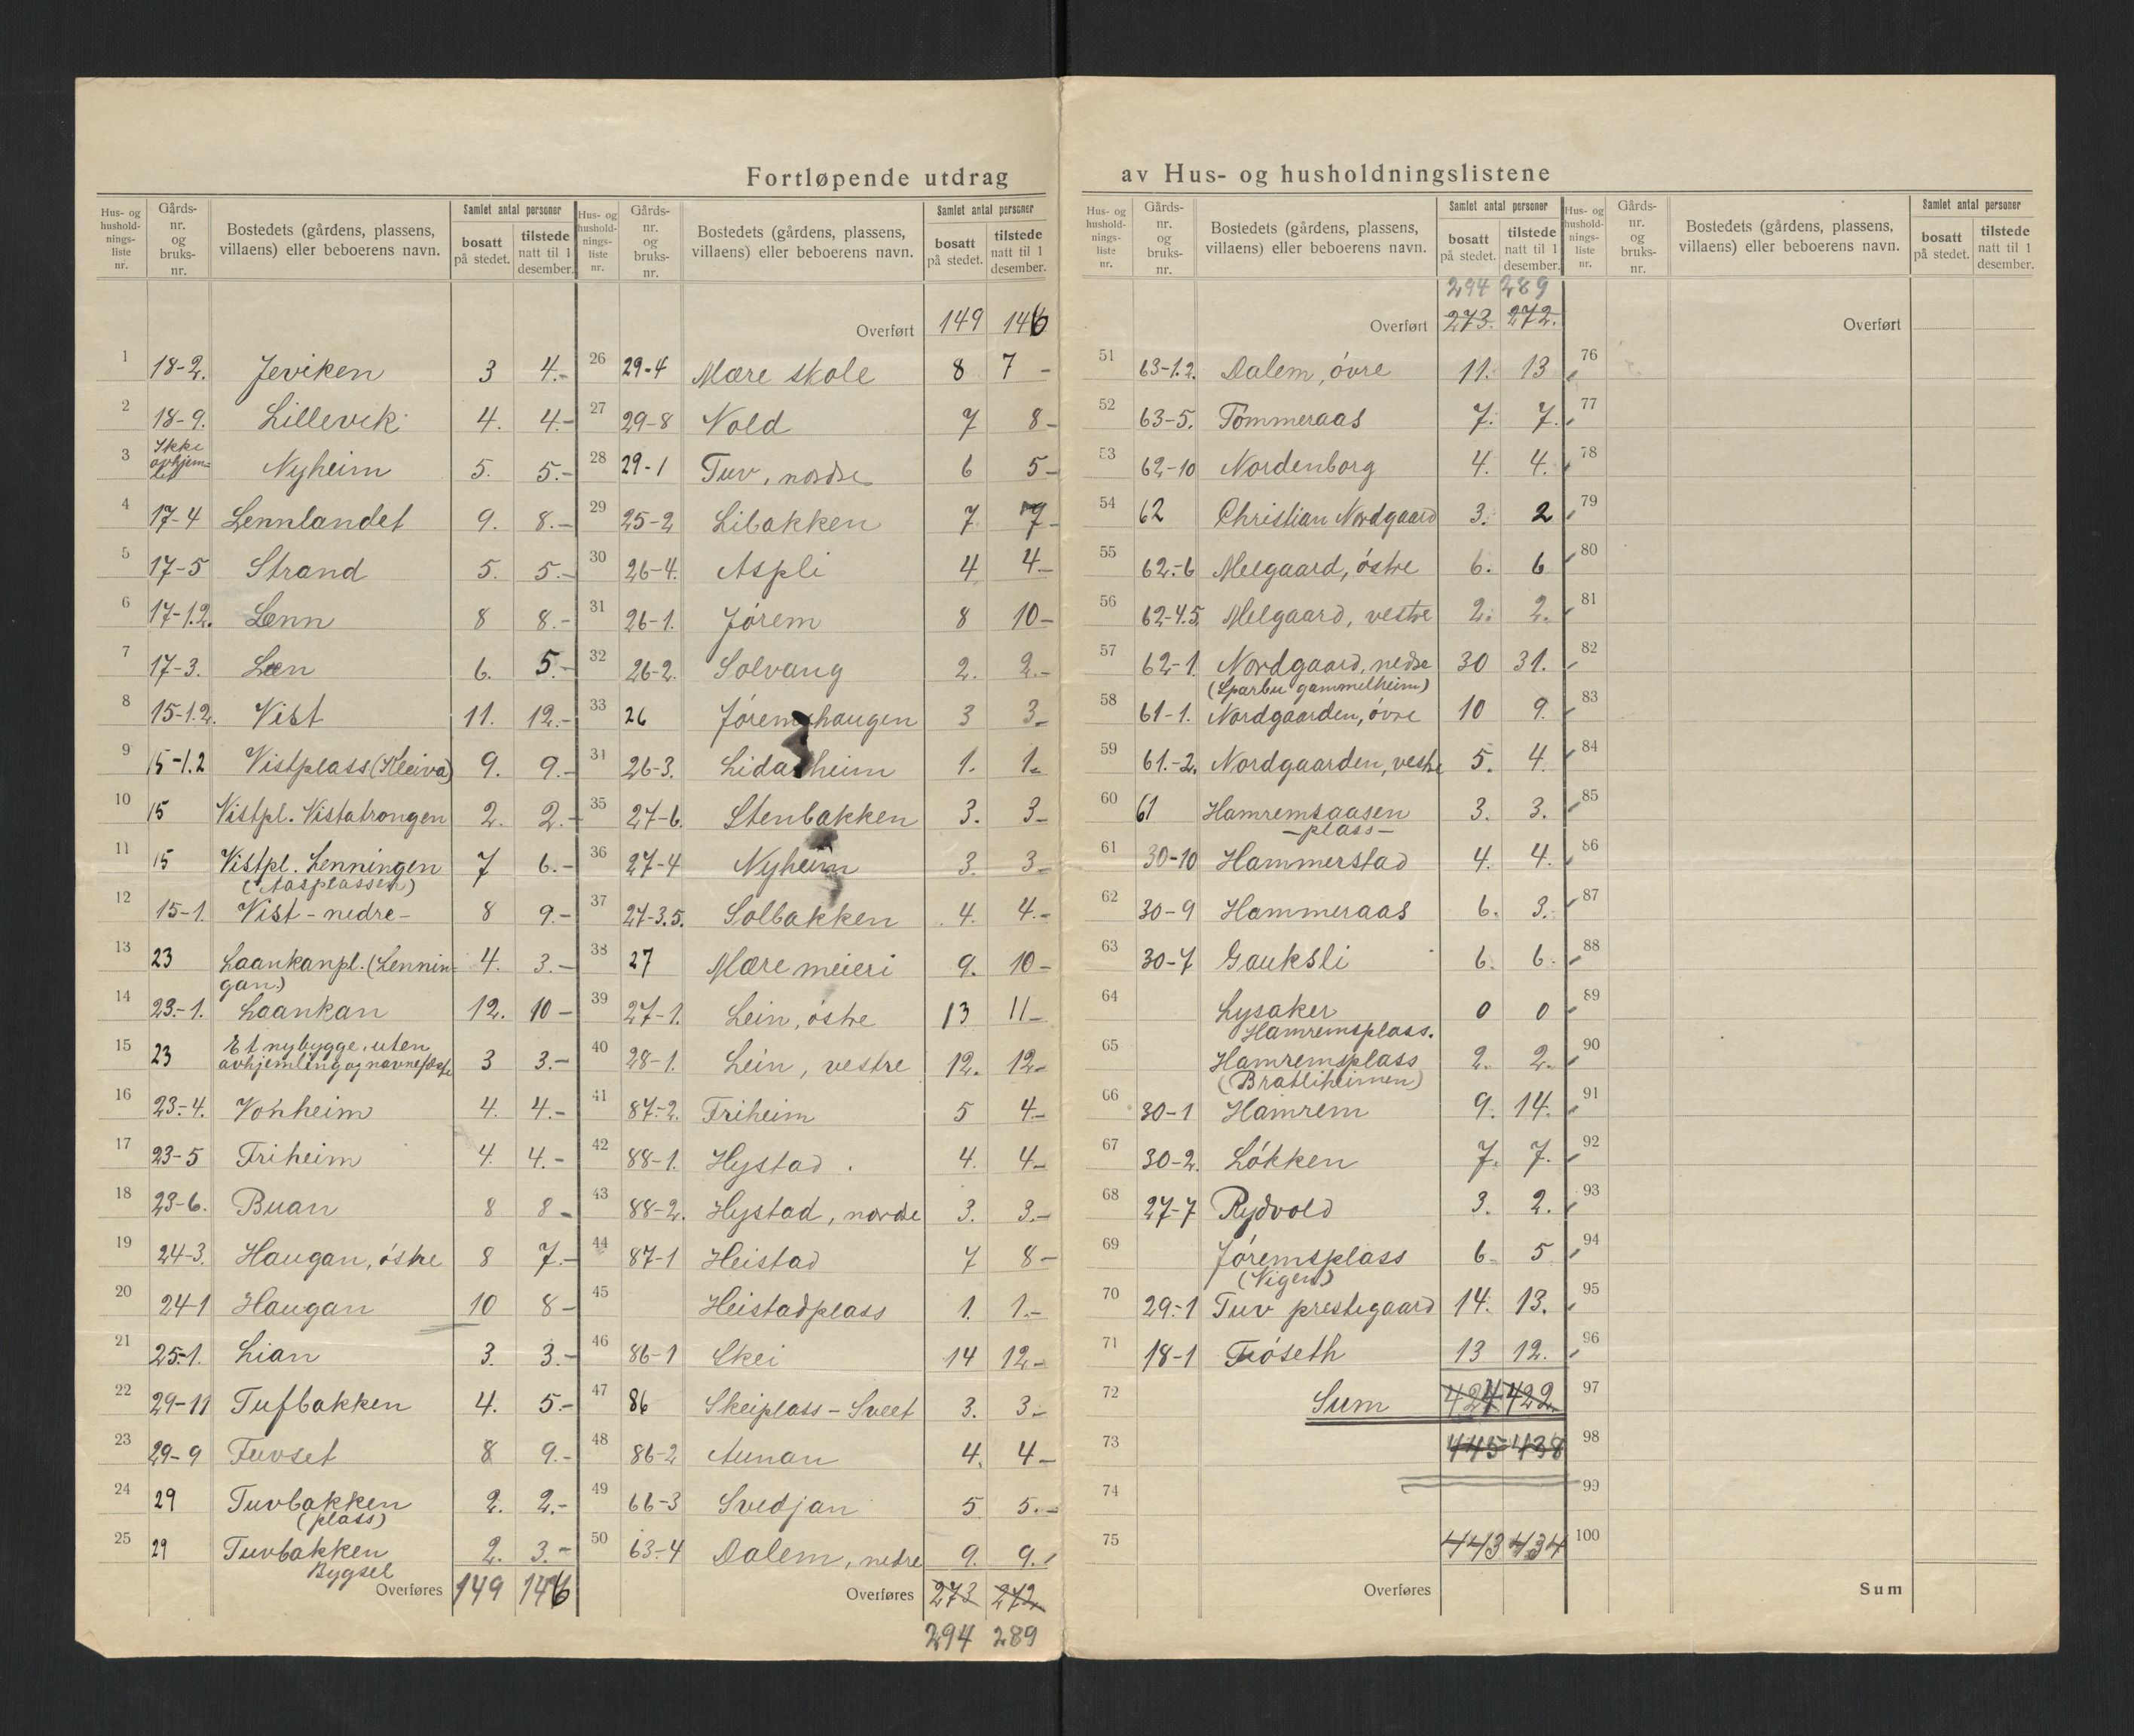 Fortløpende utdrag av Hus- og husholdningslistene
Hus- og hushold-nings-liste nr. Gårds-nr. og bruks-nr. Bostedets (gårdens, plassens, villaens) eller beboerens navn. Samlet antal personer bosatt på stedet. tilstede natt til 1 desember.
1 18-2. Jeviken 3 4.-
2 18-9. Lillevik 4. 4.-
3 Ikke avhjem-let Nyheim 5. 5.-
4 17-4 Lennlandet 9. 8.-
5 17-5 Strand 5. 5.-
6 17-1.2. Lenn 8 8.-
7 17-3. Len 6. 5.-
8 15-1.2. Vist 11. 12.-
9 15-1.2 Vistplass (Kleiva) 9. 9.-
10 15 Vistpl. Vistatrongen 2. 2.-
11 15 Vistpl. Lenningen 7 6.-
(Aasplassen)
12 15-1. Vist - nedre- 8 9.-
13 23 Laankanpl. (Lennin- 4. 3.-
gan.)
14 23.-1. Laankan 12. 10 -
15 23 Et nybygge, uten
avhjemling og navnefeste 3 3.-
16 23.-4. Vonheim 4. 4.-
17 23-5 Friheim 4. 4.-
18 23-6. Buan 8 8 -
19 24-3. Haugan, östre 8 7.-
20 24-1 Haugan 10 8 -
21 25-1. Lian 3. 3.-
22 29-11 Tufbakken 4. 5.-
23 29-9 Tuvset 8 9.-
24 29 Tuvbakken 2. 2.-
(plass)
25 29 Tuvbakken 2. 3.-
Bygsel
Overføres 149 146
Hus- og hushold-nings-liste nr. Gårds-nr. og bruks-nr. Bostedets (gårdens, plassens, villaens) eller beboerens navn. Samlet antal personer bosatt på stedet. tilstede natt til 1 desember.
Overført 149 146
26 29-4 Mære skole 8 7 -
27 29-8 Vold 7 8 -
28 29-1 Tuv, nordre 6 5 -
29 25-2 Libakken 7 7 -
30 26-4. Aspli 4 4.-
31 26-1. Jörem 8 10 -
32 26-2. Solvang 2. 2.-
33 26 Jöremshaugen 3 3.-
34 26-3. Lidarheim 1. 1.-
35 27-6. Stenbakken 3. 3 -
36 27-4 Nyheim 3. 3 -
37 27-3.5. Solbakken 4. 4.-
38 27 Mære meieri 9. 10 -
39 27-1. Lein, östre 13 11 -
40 28-1. Lein, vestre 12. 12 -
41 87-2. Friheim 5 4 -
42 88-1. Hystad 4. 4 -
43 88-2. Hystad, nordre 3. 3.-
44 87-1 Heistad 7 8 -
45 Heistadplass 1. 1.-
46 86-1 Skei 14 12.-
47 86 Skeiplass - Sveet 3. 3.-
48 86-2 Aunan 4. 4 -
49 66-3 Svedjan 5 5.-
50 63-4 Dalem, nedre 9. 9.
Overføres 273 272
294 289
Hus- og hushold-nings-liste nr. Gårds-nr. og bruks-nr. Bostedets (gårdens, plassens, villaens) eller beboerens navn. Samlet antal personer bosatt på stedet. tilstede natt til 1 desember.
294 289
Overført 273. 272.
51 63-1.2. Dalem, övre 11. 13
52 63-5. Tömmeraas 7. 7.
53 62-10 Nordenborg 4. 4.
54 62 Christian Nordgaard 3. 2
55 62-6 Melgaard, östre 6. 6
56 62-4.5. Melgaard, vestre 2. 2.
57 62-1 Nordgaard, nedre 30 31.
(Sparbu gammelheim)
58 61-1. Nordgaarden, övre 10 9.
59 61.-2. Nordgaarden, vestre 5. 4.
60 61 Hamremsaasen 3. 3.
- plass -
61 30-10 Hammerstad 4. 4.
62 30-9 Hammeraas 6. 3.
63 30-7 Gauksli 6. 6.
64 Lysaker 0 0
Hamremsplass.
65 Hamremsplass 2. 2.
(Bratliheimen)
66 30-1 Hamrem 9. 14.
67 30-2. Lökken 7. 7.
68 27-7 Rydvold 3. 2.
69 Jöremsplass 6. 5
(Vigen)
70 29.-1 Tuv prestegaard 14. 13.
71 18-1 Fröseth 13 12.
72 Sum 424 422
73 445 438
74
75 443 434
Overføres
Hus- og hushold-nings-liste nr. Gårds-nr. og bruks-nr. Bostedets (gårdens, plassens, villaens) eller beboerens navn. Samlet antal personer bosatt på stedet. tilstede natt til 1 desember.
Overført
76
77
78
79
80
81
82
83
84
85
86
87
88
89
90
91
92
93
94
95
96
97
98
99
100
Sum